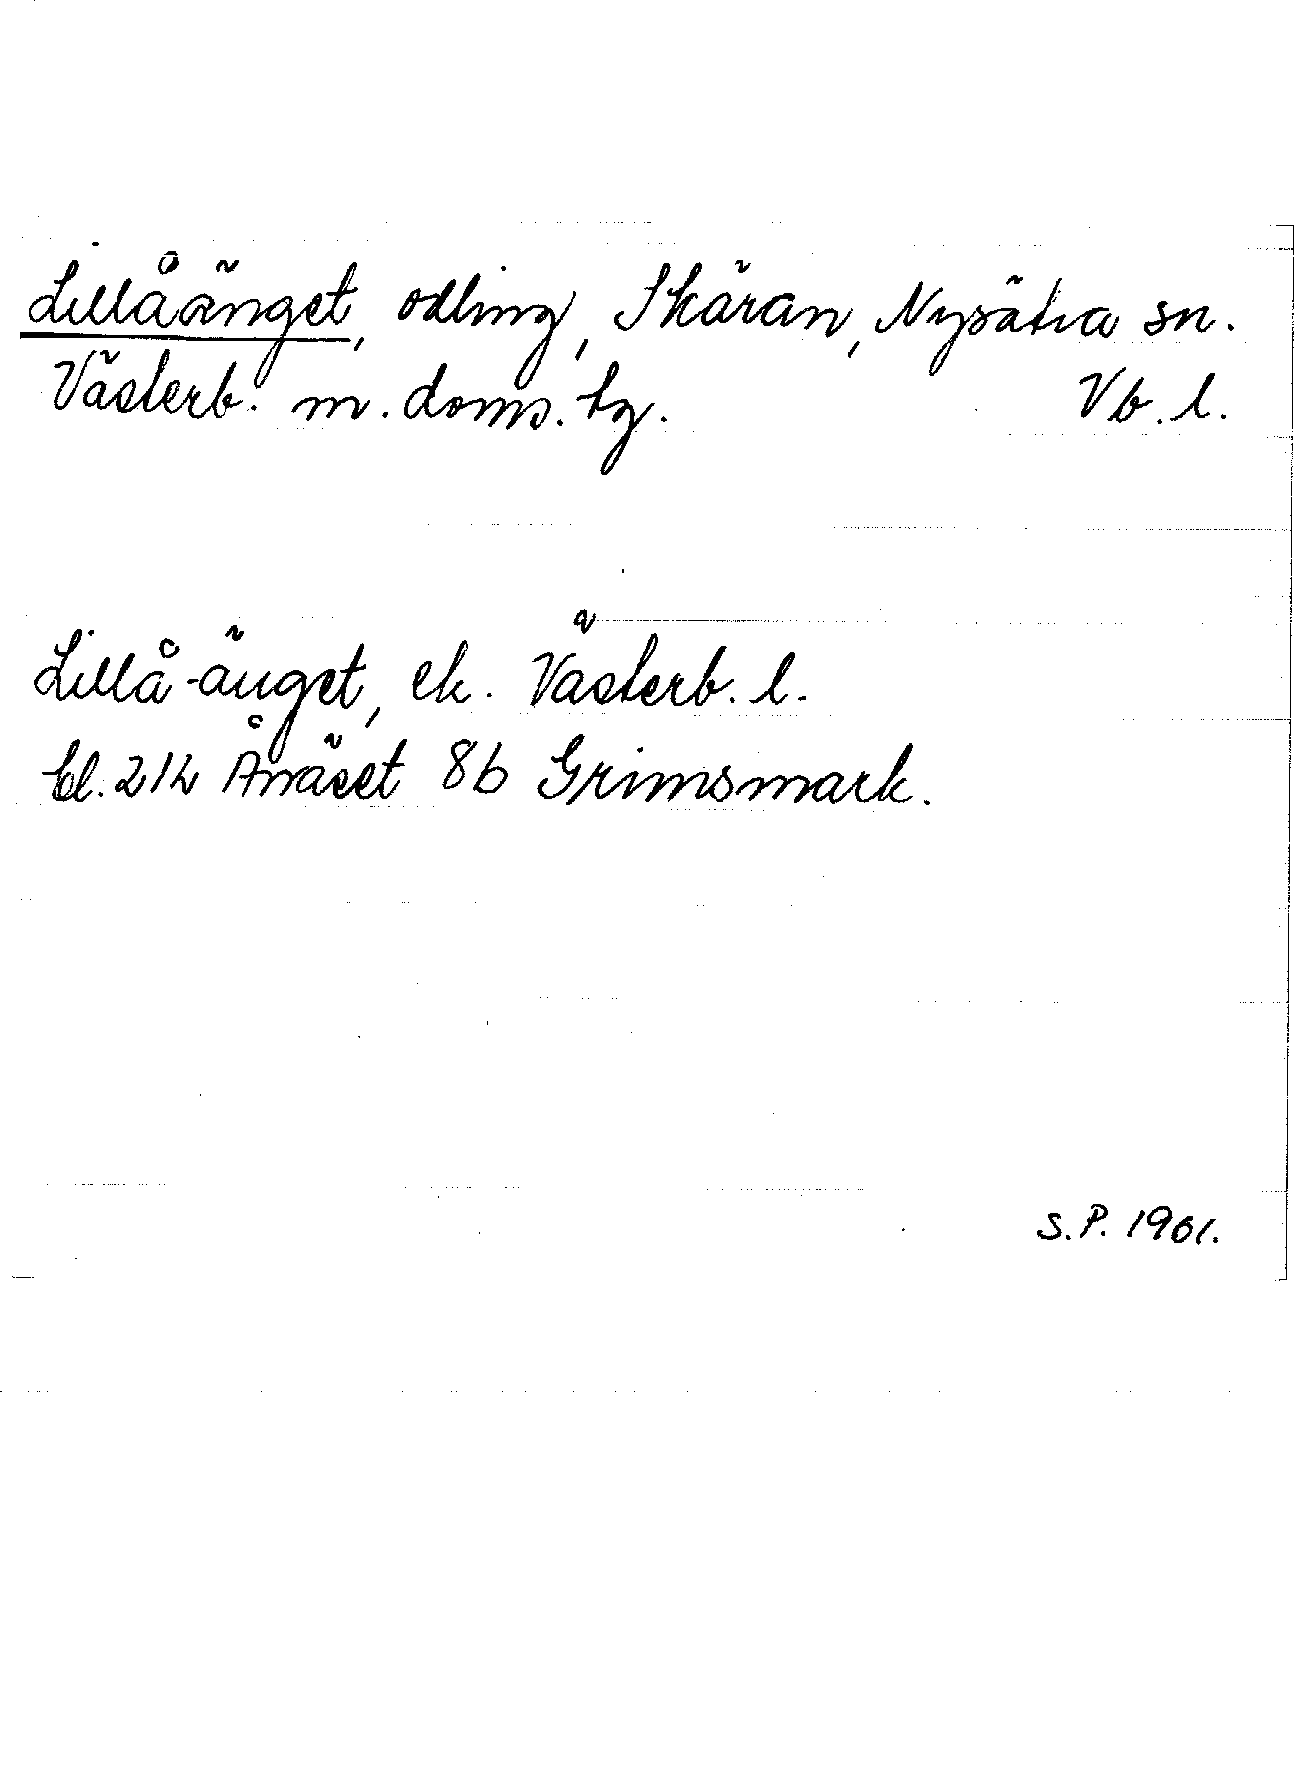 Lillåänget, odling, Skäran, Nysätra sn.
Västerb. m. doms. tg. Vb. l.
Lillå-änget, ek. Västerb. l.
bl. 21L Ånäset 8b Grimsmark.
S.P. 1961.